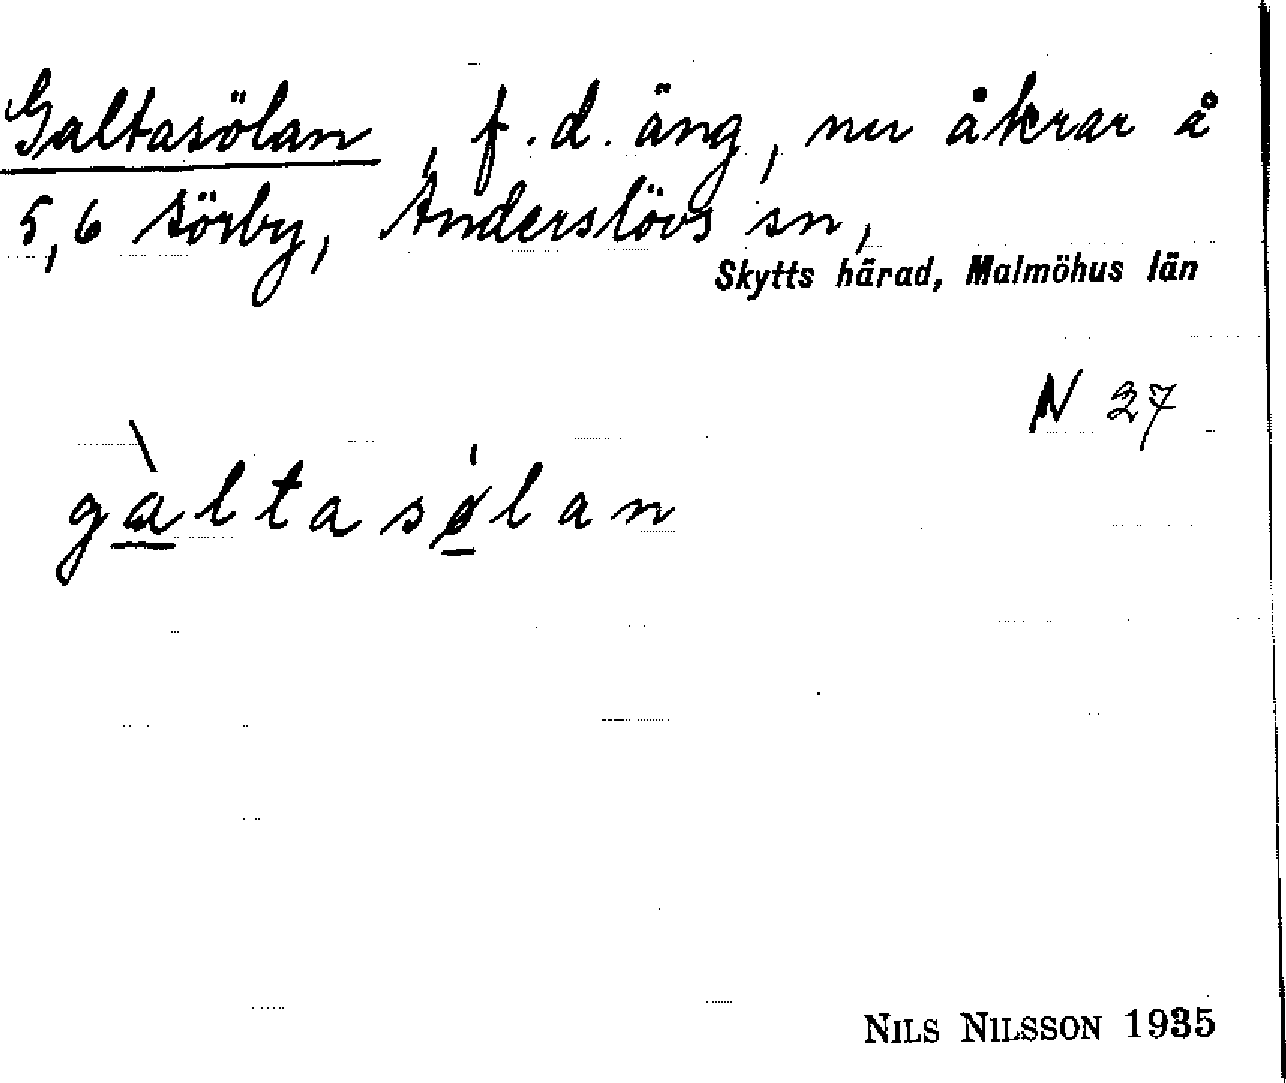 Galtasölan, f.d. äng, nu åkrar å
5,6 Sörby, Anderslövs sn,
Skytts härad, Malmöhus län
N 27
gàltasølan
NILS NILSSON 1935